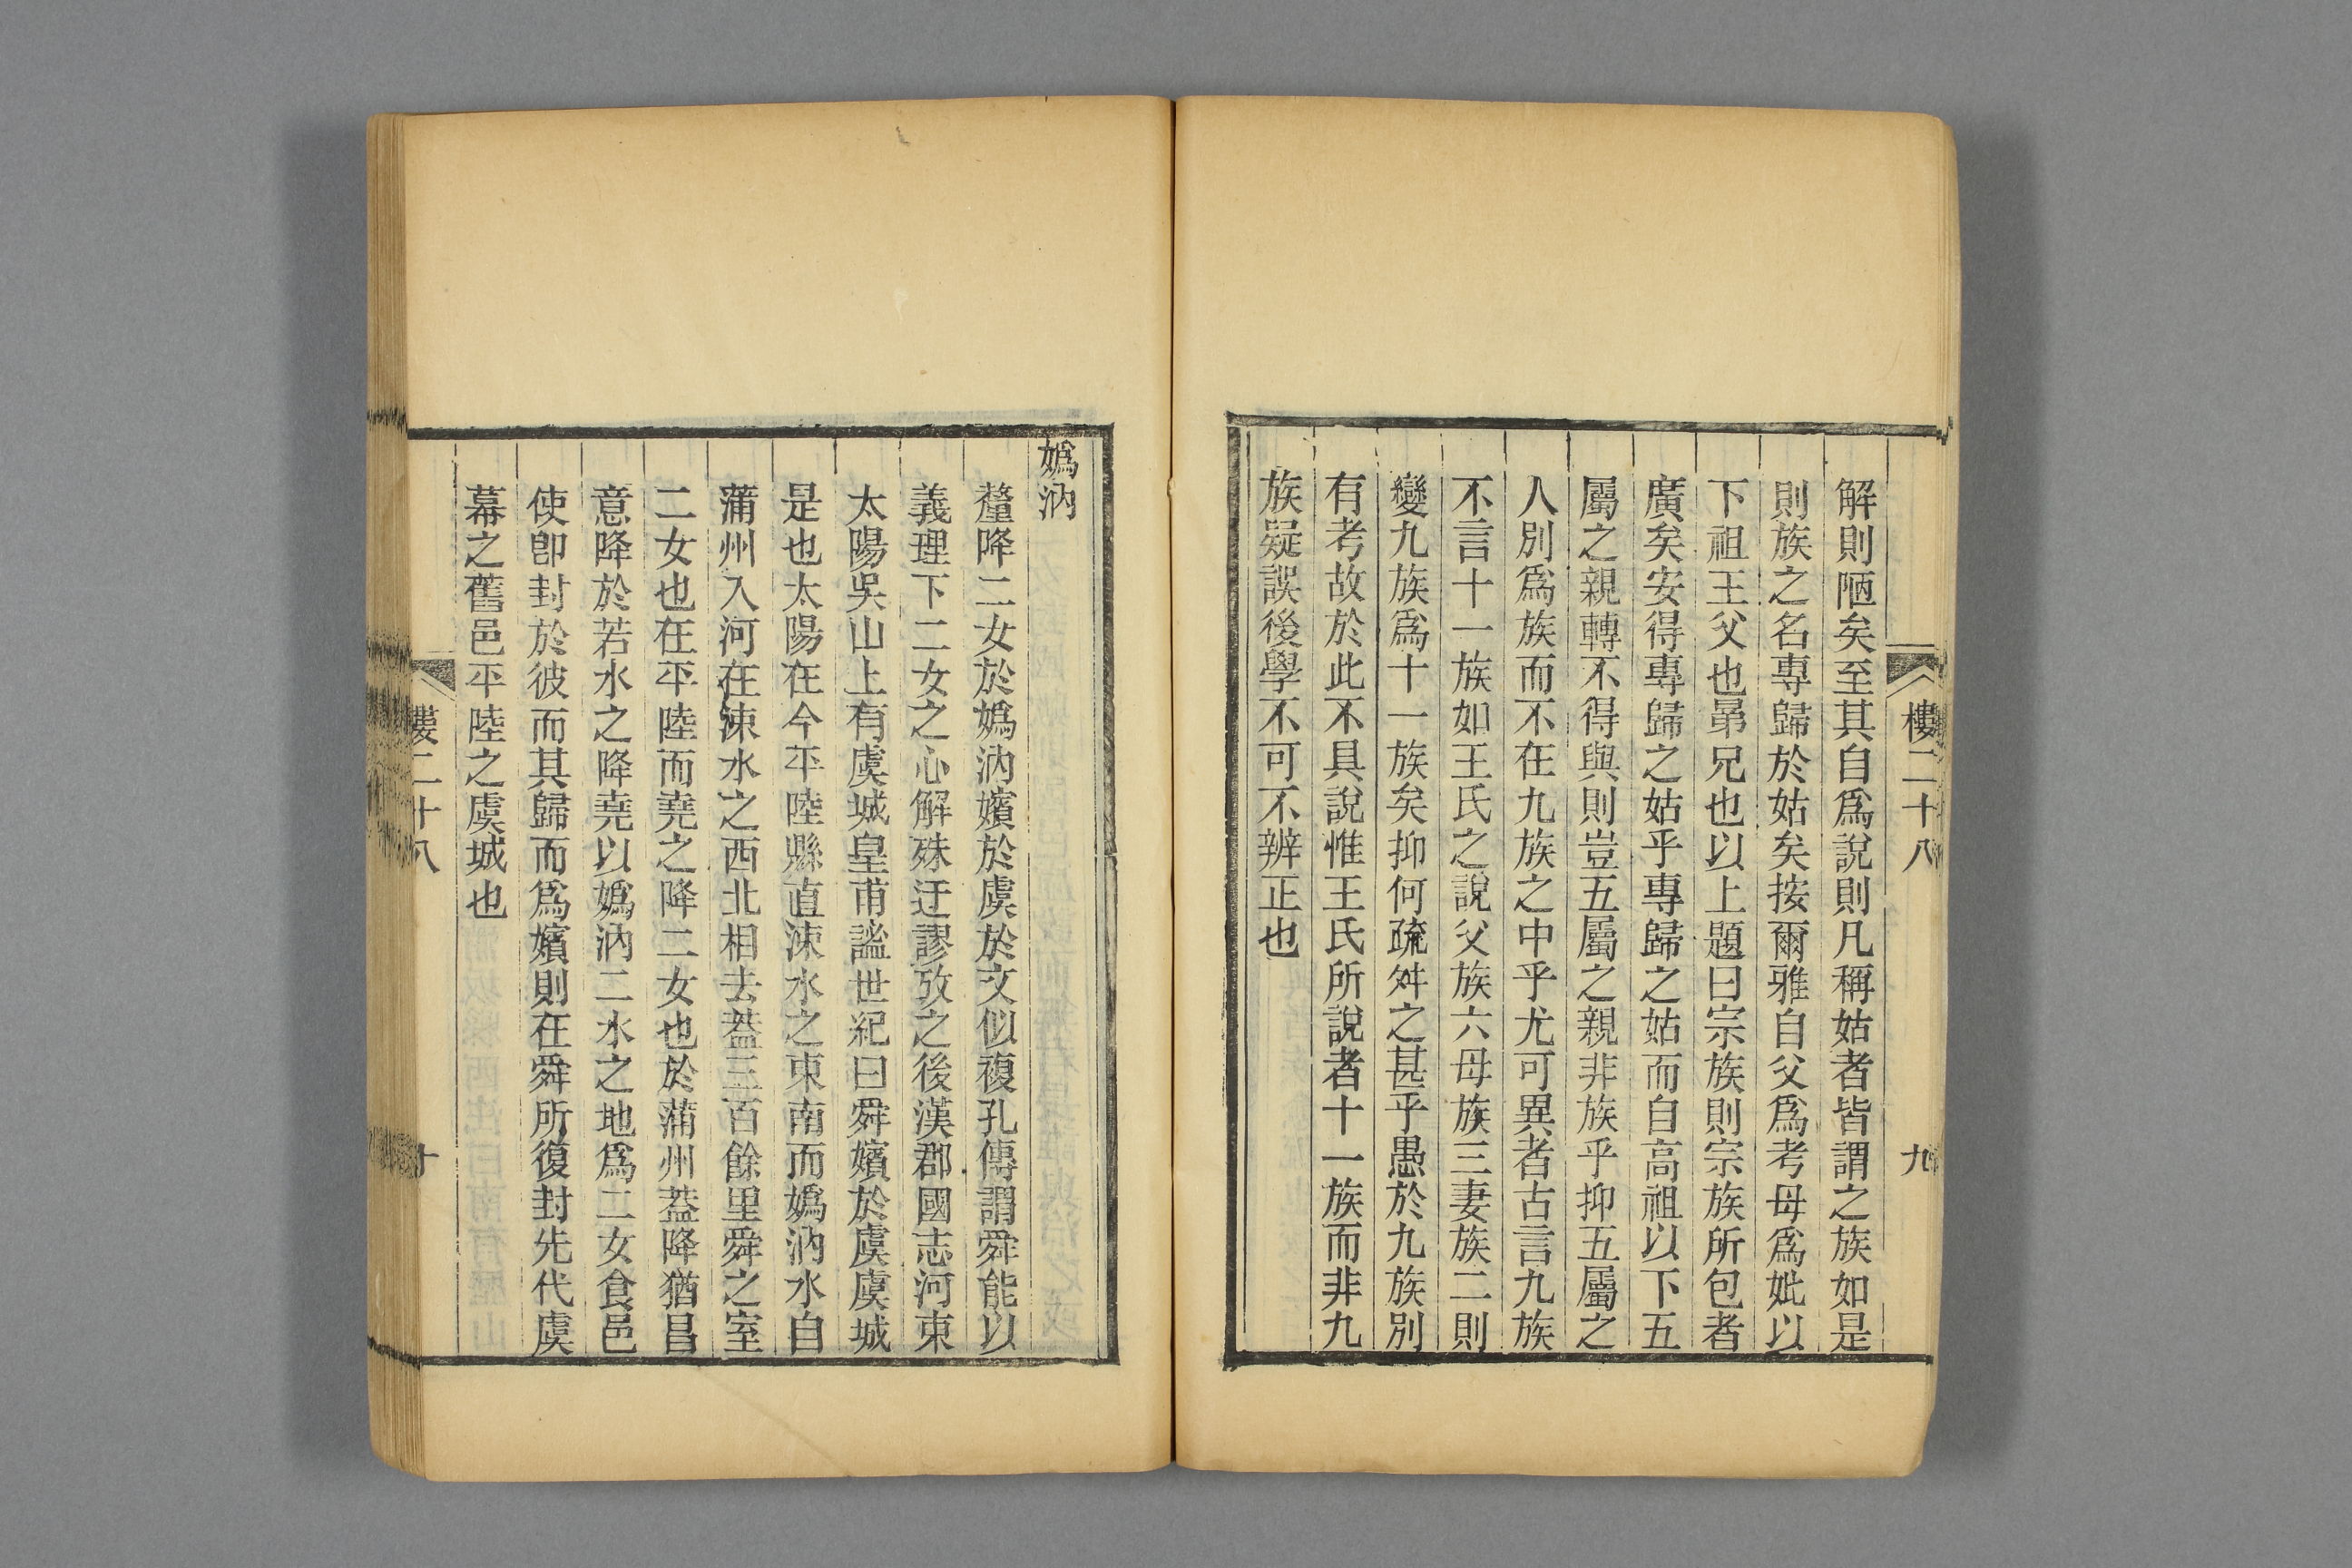 樓二十八
九
解則陋矣至其自爲說則凡稱姑者皆謂之族如是
則族之名專歸於姑矣按爾雅自父爲考母爲妣以
下祖王父也晜兄也以上題曰宗族則宗族所包者
廣矣安得專歸之姑乎專歸之姑而自高祖以下五
屬之親轉不得與則豈五屬之親非族乎抑五屬之
人別爲族而不在九族之中乎尤可異者古言九族
不言十一族如王氏之說父族六母族三妻族二則
變九族爲十一族矣抑何疏舛之甚乎愚於九族別
有考故於此不具說惟王氏所說者十一族而非九
族疑誤後學不可不辨正也
嬀汭
釐降二女於嬀汭嬪於虞於文似複孔傳謂舜能以
義理下二女之心解殊迂謬攷之後漢郡國志河東
太陽吳山上有虞城皇甫謐世紀曰舜嬪於虞虞城
是也太陽在今平陸縣直涑水之東南而嬀汭水自
蒲州入河在涑水之西北相去葢三百餘里舜之室
二女也在平陸而堯之降二女也於蒲州葢降猶昌
意降於若水之降堯以嬀汭二水之地爲二女食邑
使卽封於彼而其歸而爲嬪則在舜所復封先代虞
幕之舊邑平陸之虞城也
樓二十八
十